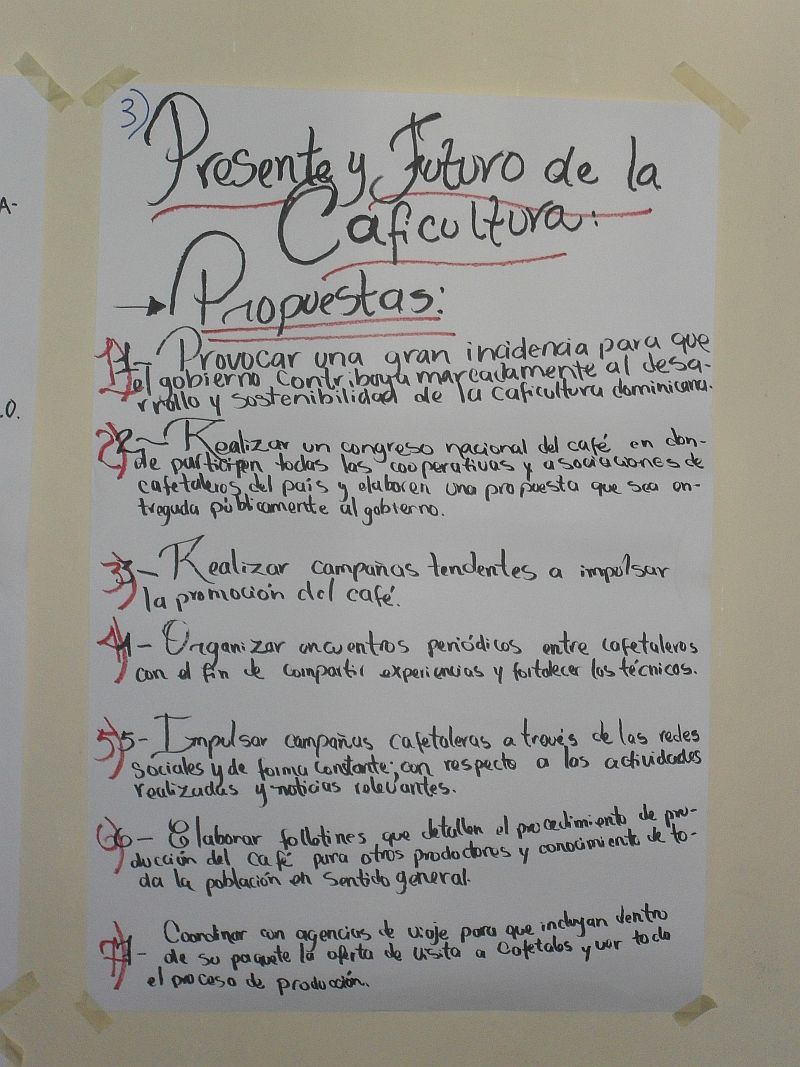 A-
.O.
3)
Presente y Futuro de la
Caficultura:
→ Propuestas:
1) 1- Provocar una gran incidencia para que
el gobierno contribuya marcadamente al desa-
rrollo y sostenibilidad de la caficultura dominicana.
2) 2- Realizar un congreso nacional del café en don-
de participen todas las cooperativas y asociaciones de
cafetaleros del país y elaboren una propuesta que sea en-
tregada públicamente al gobierno.
3) 3- Realizar campañas tendentes a impulsar
la promoción del café.
4) 4- Organizar encuentros periódicos entre cafetaleros
con el fin de compartir experiencias y fortalecer las técnicas.
5) 5- Impulsar campañas cafetaleras a través de las redes
sociales y de forma constante; con respecto a las actividades
realizadas y noticias relevantes.
6) 6- Elaborar folletines que detallen el procedimiento de pro-
ducción del café para otros productores y conocimiento de to-
da la población en sentido general.
7) 7- Coordinar con agencias de viaje para que incluyan dentro
de su paquete la oferta de visita a cafetales y ver todo
el proceso de producción.